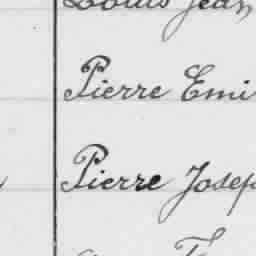 Louis Jean
Pierre Emi
Pierre Josep